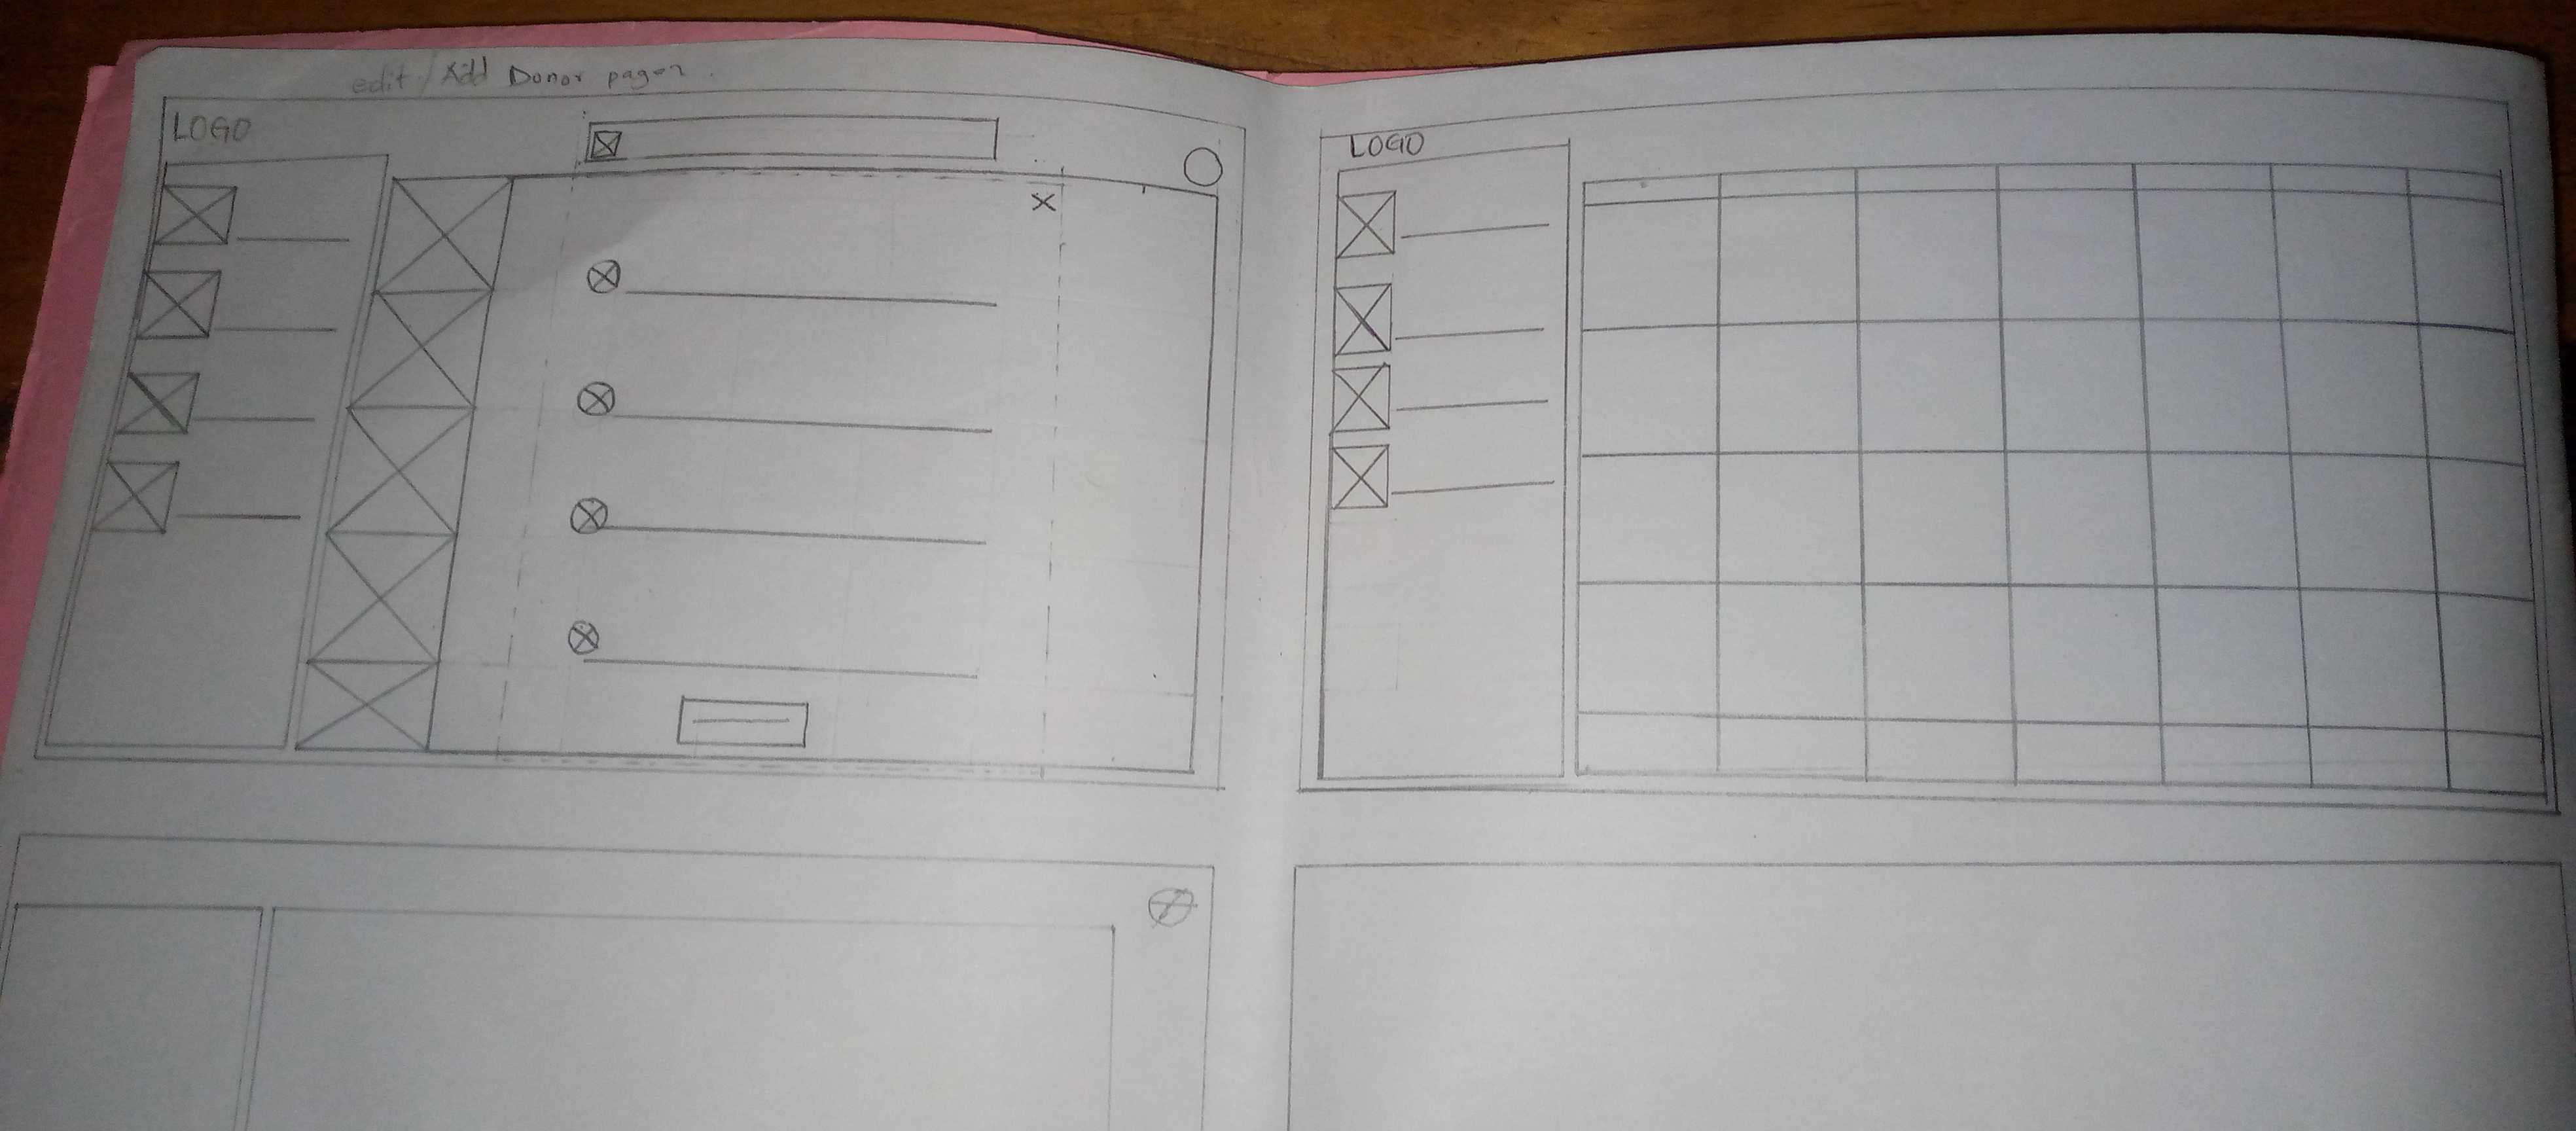 edit / Add Donor page
LOGO
X
LOGO